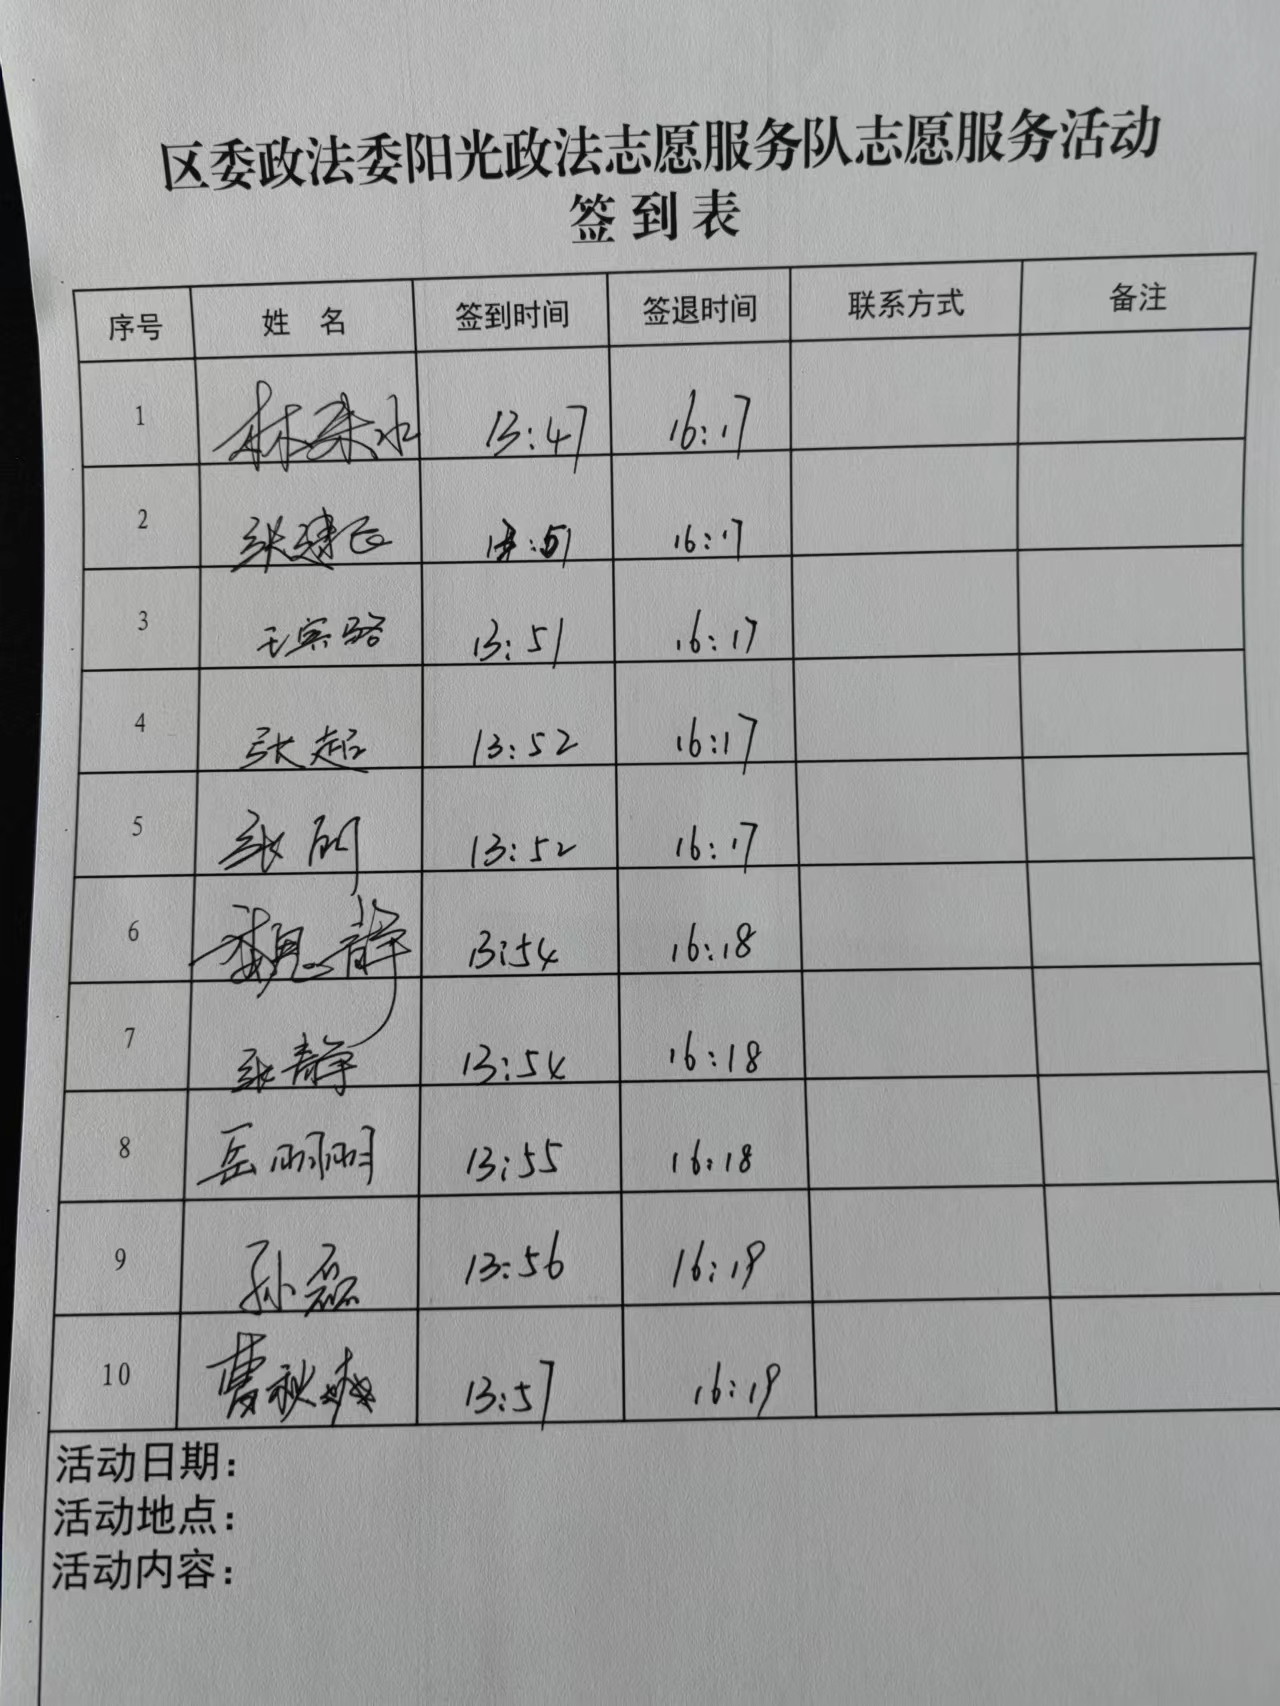 区委政法委阳光政法志愿服务队志愿服务活动
签到表
序号 姓 名 签到时间 签退时间 联系方式 备注
1 林荣水 13:47 16:17
2 张建 :51 16:17
3 王宾路 13:51 16:17
4 张超 13:52 16:17
5 张 13:52 16:17
6 魏静 13:54 16:18
7 张静 13:54 16:18
8 岳明明 13:55 16:18
9 孙磊 13:56 16:19
10 曹秋 13:57 16:19
活动日期：
活动地点：
活动内容：